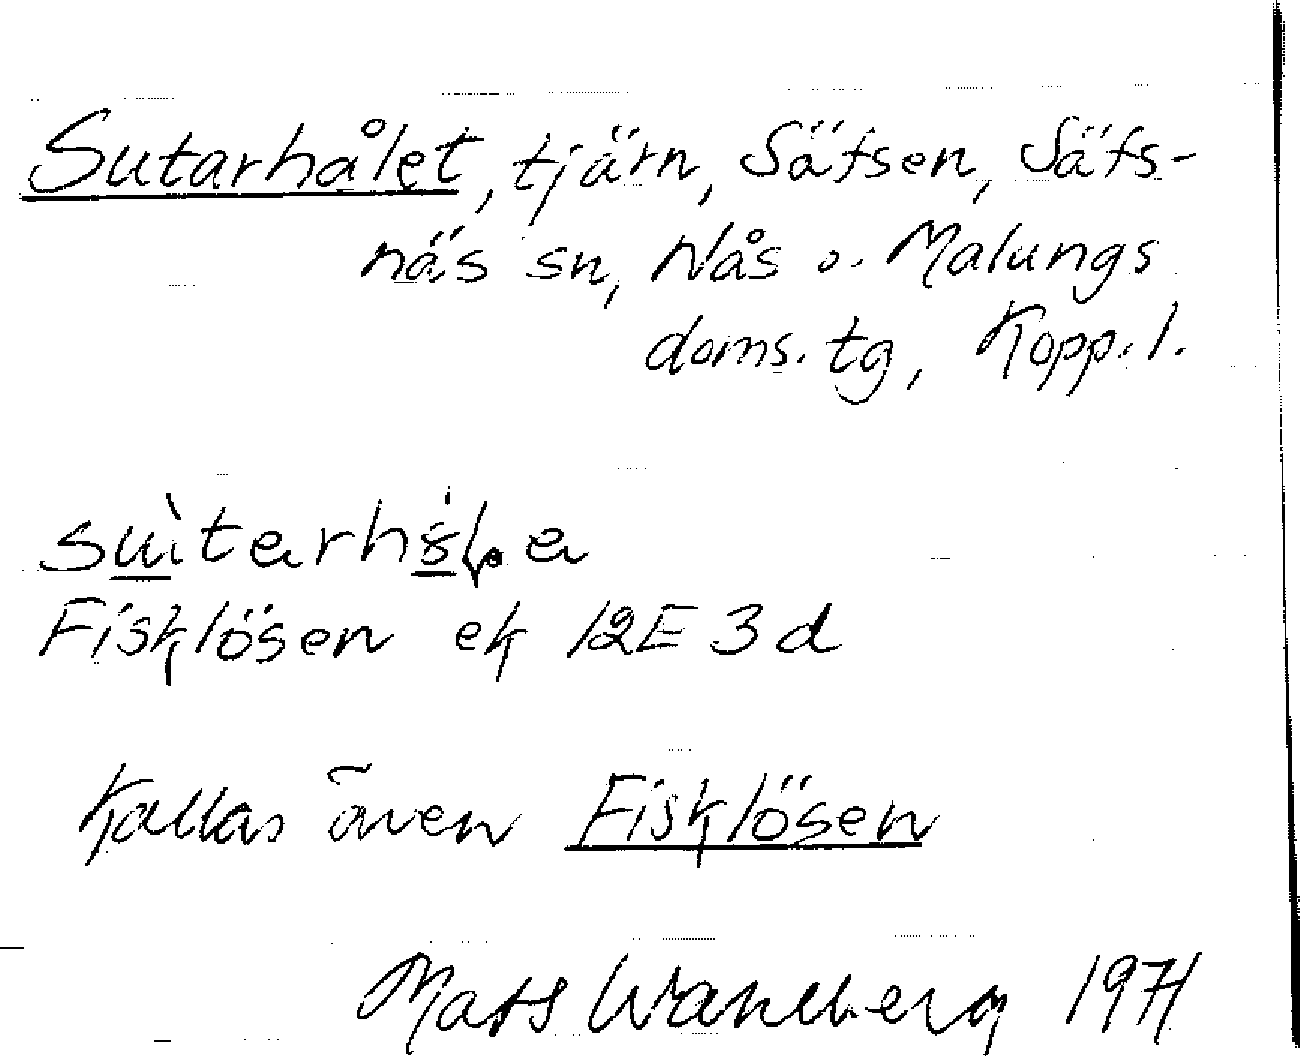 Sutarhålet, tjärn, Säfsen, Säfs-
näs sn, Nås o. Malungs
doms. tg, Kopp. l.
Fisklösen ek 12E 3d
Kallas även Fisklösen
Mats Wahlberg 1971